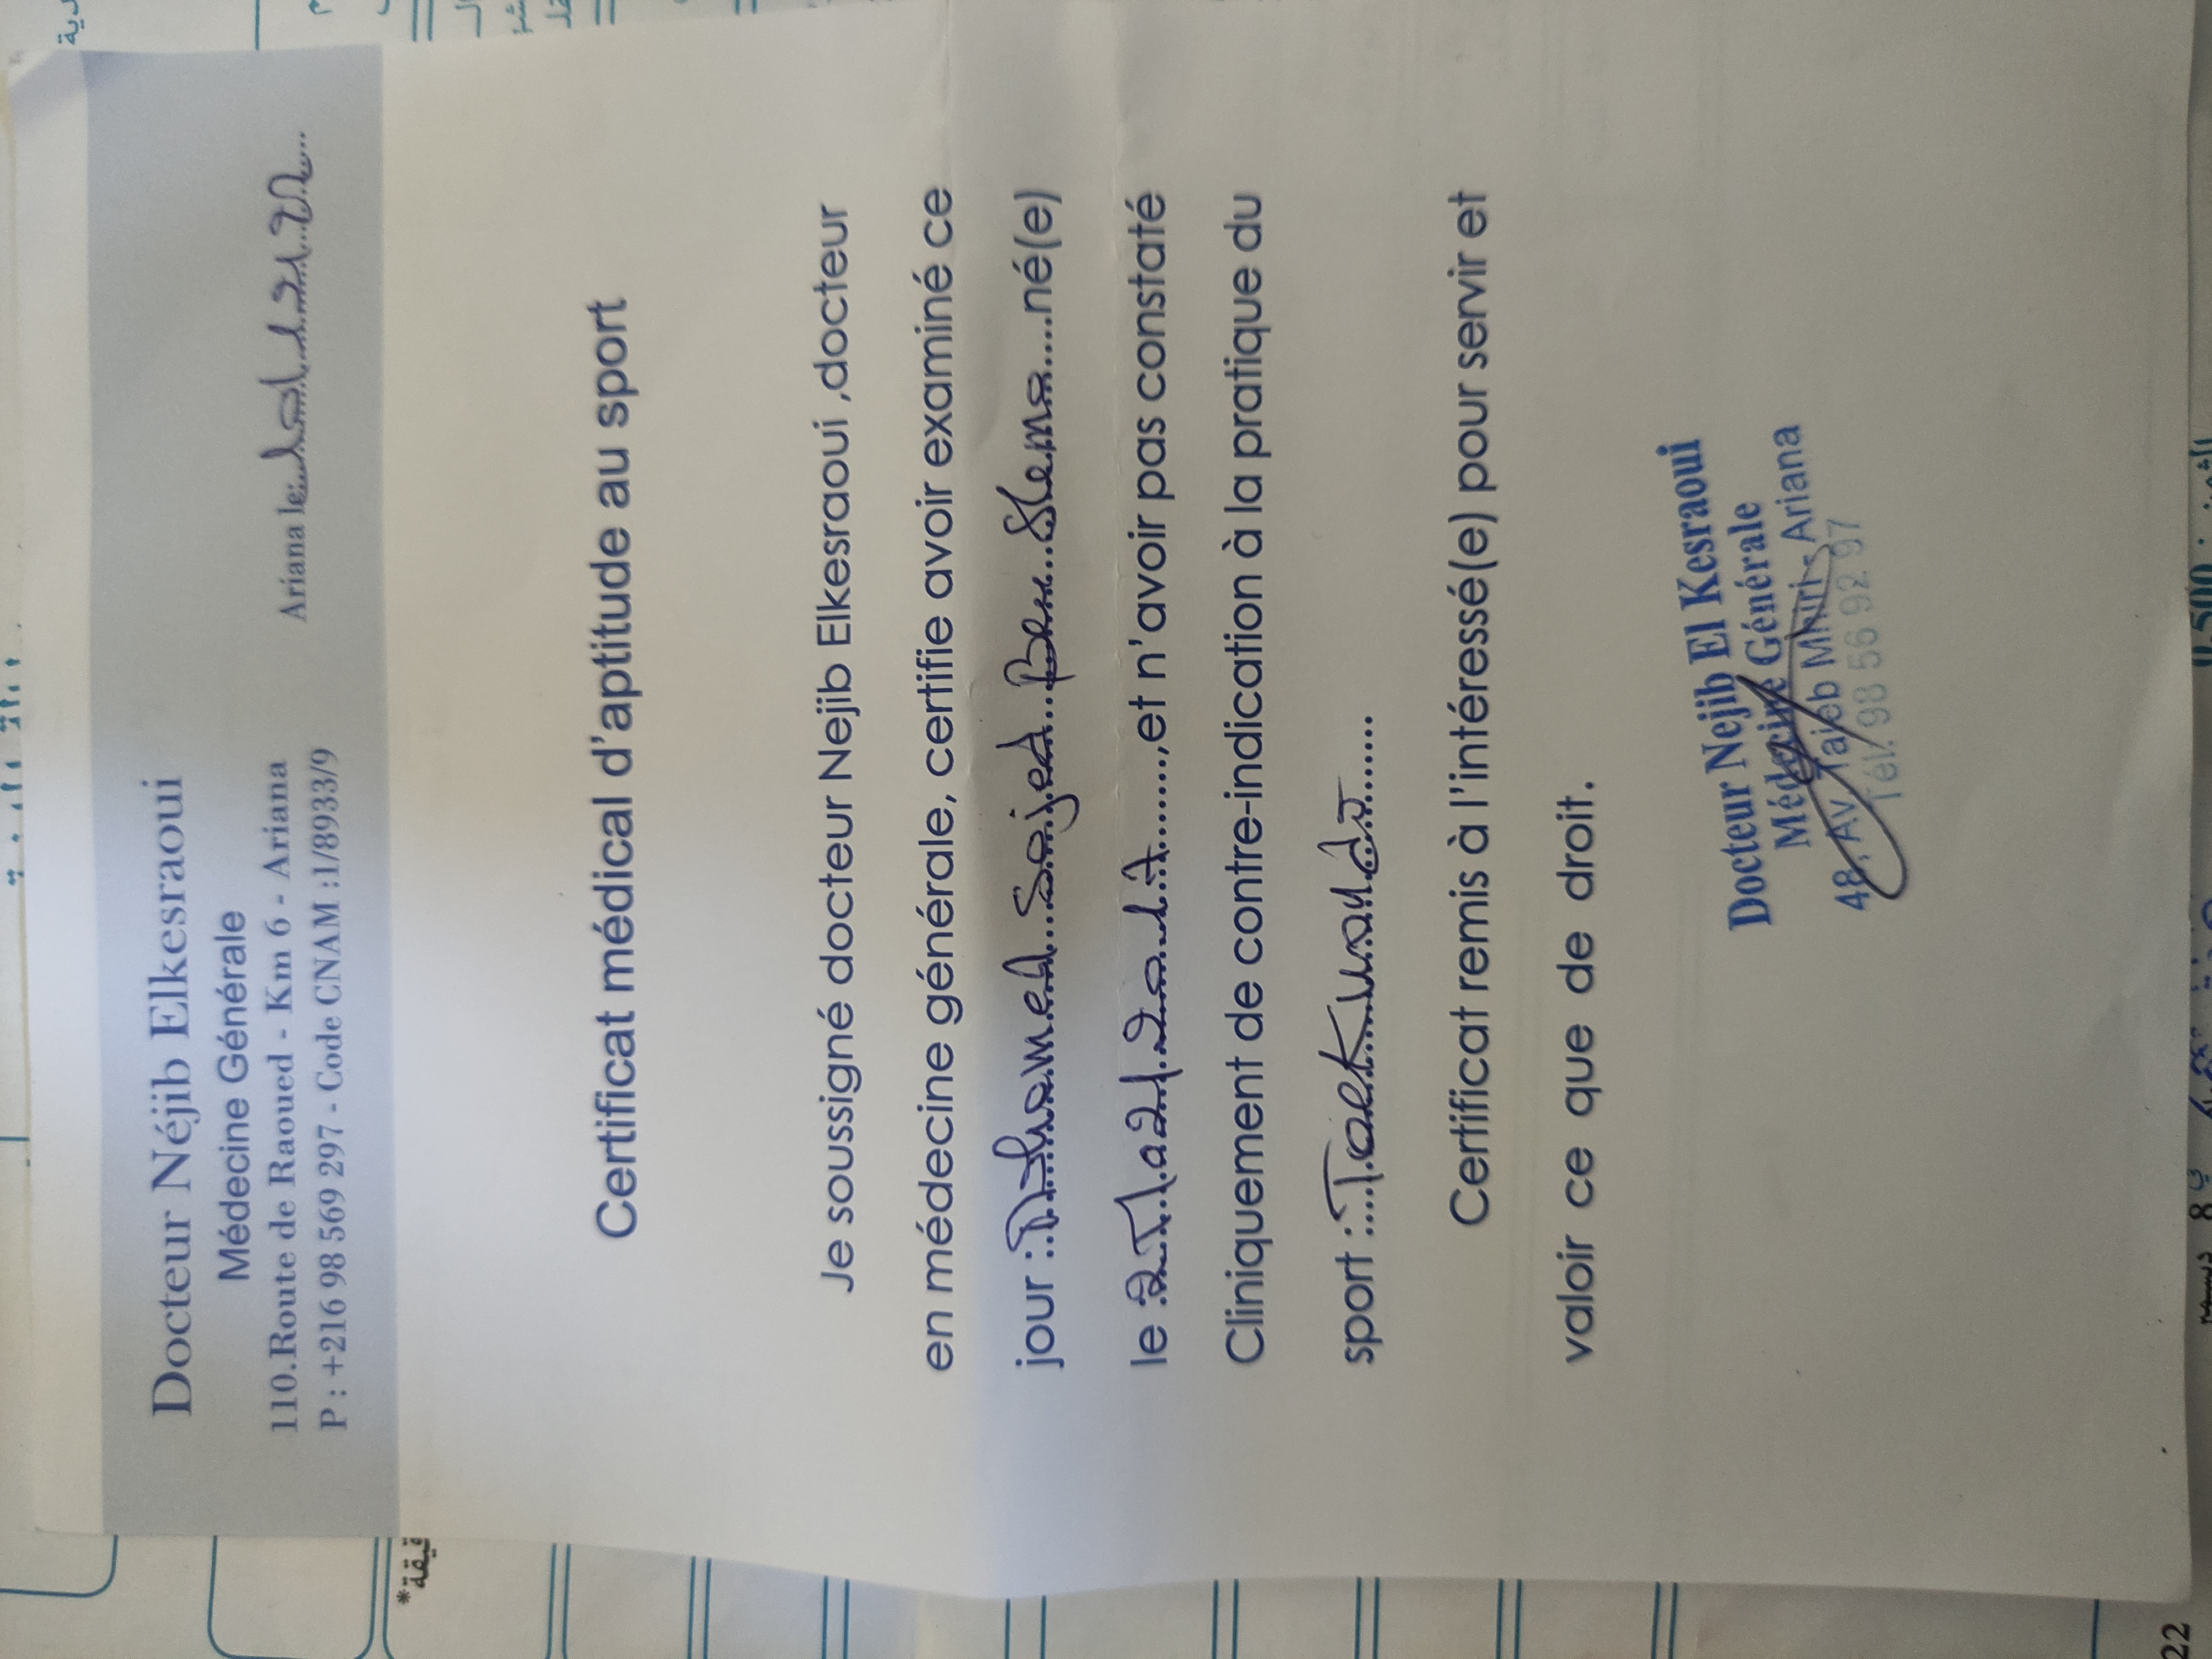 Docteur Néjib Elkesraoui
Médecine Générale
110.Route de Raoued - Km 6 - Ariana
P : +216 98 569 297 - Code CNAM :1/8933/9
Ariana le:
Certificat médical d'aptitude au sport
Je soussigné docteur Nejib Elkesraoui ,docteur
en médecine générale, certifie avoir examiné ce
jour : Mohamed Sajed Ben Slema né(e)
le ,et n'avoir pas constaté
Cliniquement de contre-indication à la pratique du
sport : Taekwando
Certificat remis à l'intéressé(e) pour servir et
valoir ce que de droit.
Docteur Nejib El Kesraoui
Médecine Générale
48, Av Taieb Mhiri - Ariana
Tél: 98 56 92 97
قيقة*
22